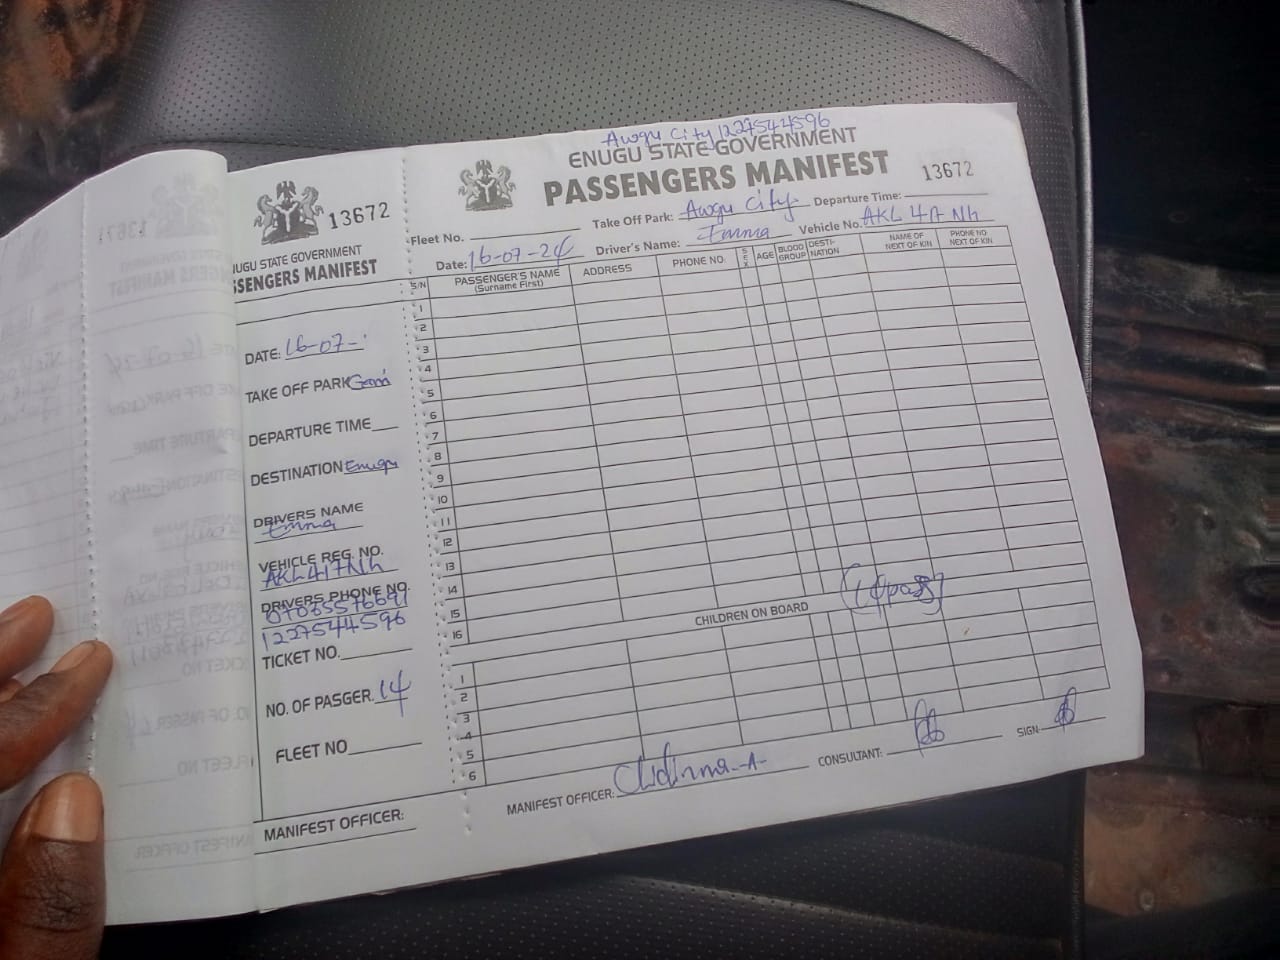 13672
UGU STATE GOVERNMENT
SSENGERS MANIFEST
DATE: 16-07-
TAKE OFF PARK
DEPARTURE TIME
DESTINATION Enugu
DRIVERS NAME
Emma
VEHICLE REG. NO.
AKL417NH
DRIVERS PHONE NO.
1227544596
TICKET NO.
NO. OF PASGER. 14
FLEET NO
MANIFEST OFFICER:
Awgu City 1227544596
ENUGU STATE GOVERNMENT
PASSENGERS MANIFEST
13672
Fleet No. Take Off Park: Awgu City Departure Time:
Date: 16-07-24 Driver's Name: Emma Vehicle No. AKL 417 NH
S/N PASSENGER'S NAME (Surname First) ADDRESS PHONE NO. SEX AGE BLOOD GROUP DESTI-NATION NAME OF NEXT OF KIN PHONE NO NEXT OF KIN
1
2
3
4
5
6
7
8
9
10
11
12
13
14
15
16
CHILDREN ON BOARD
1
2
3
4
5
6
MANIFEST OFFICER: Chidinma-A- CONSULTANT: SIGN